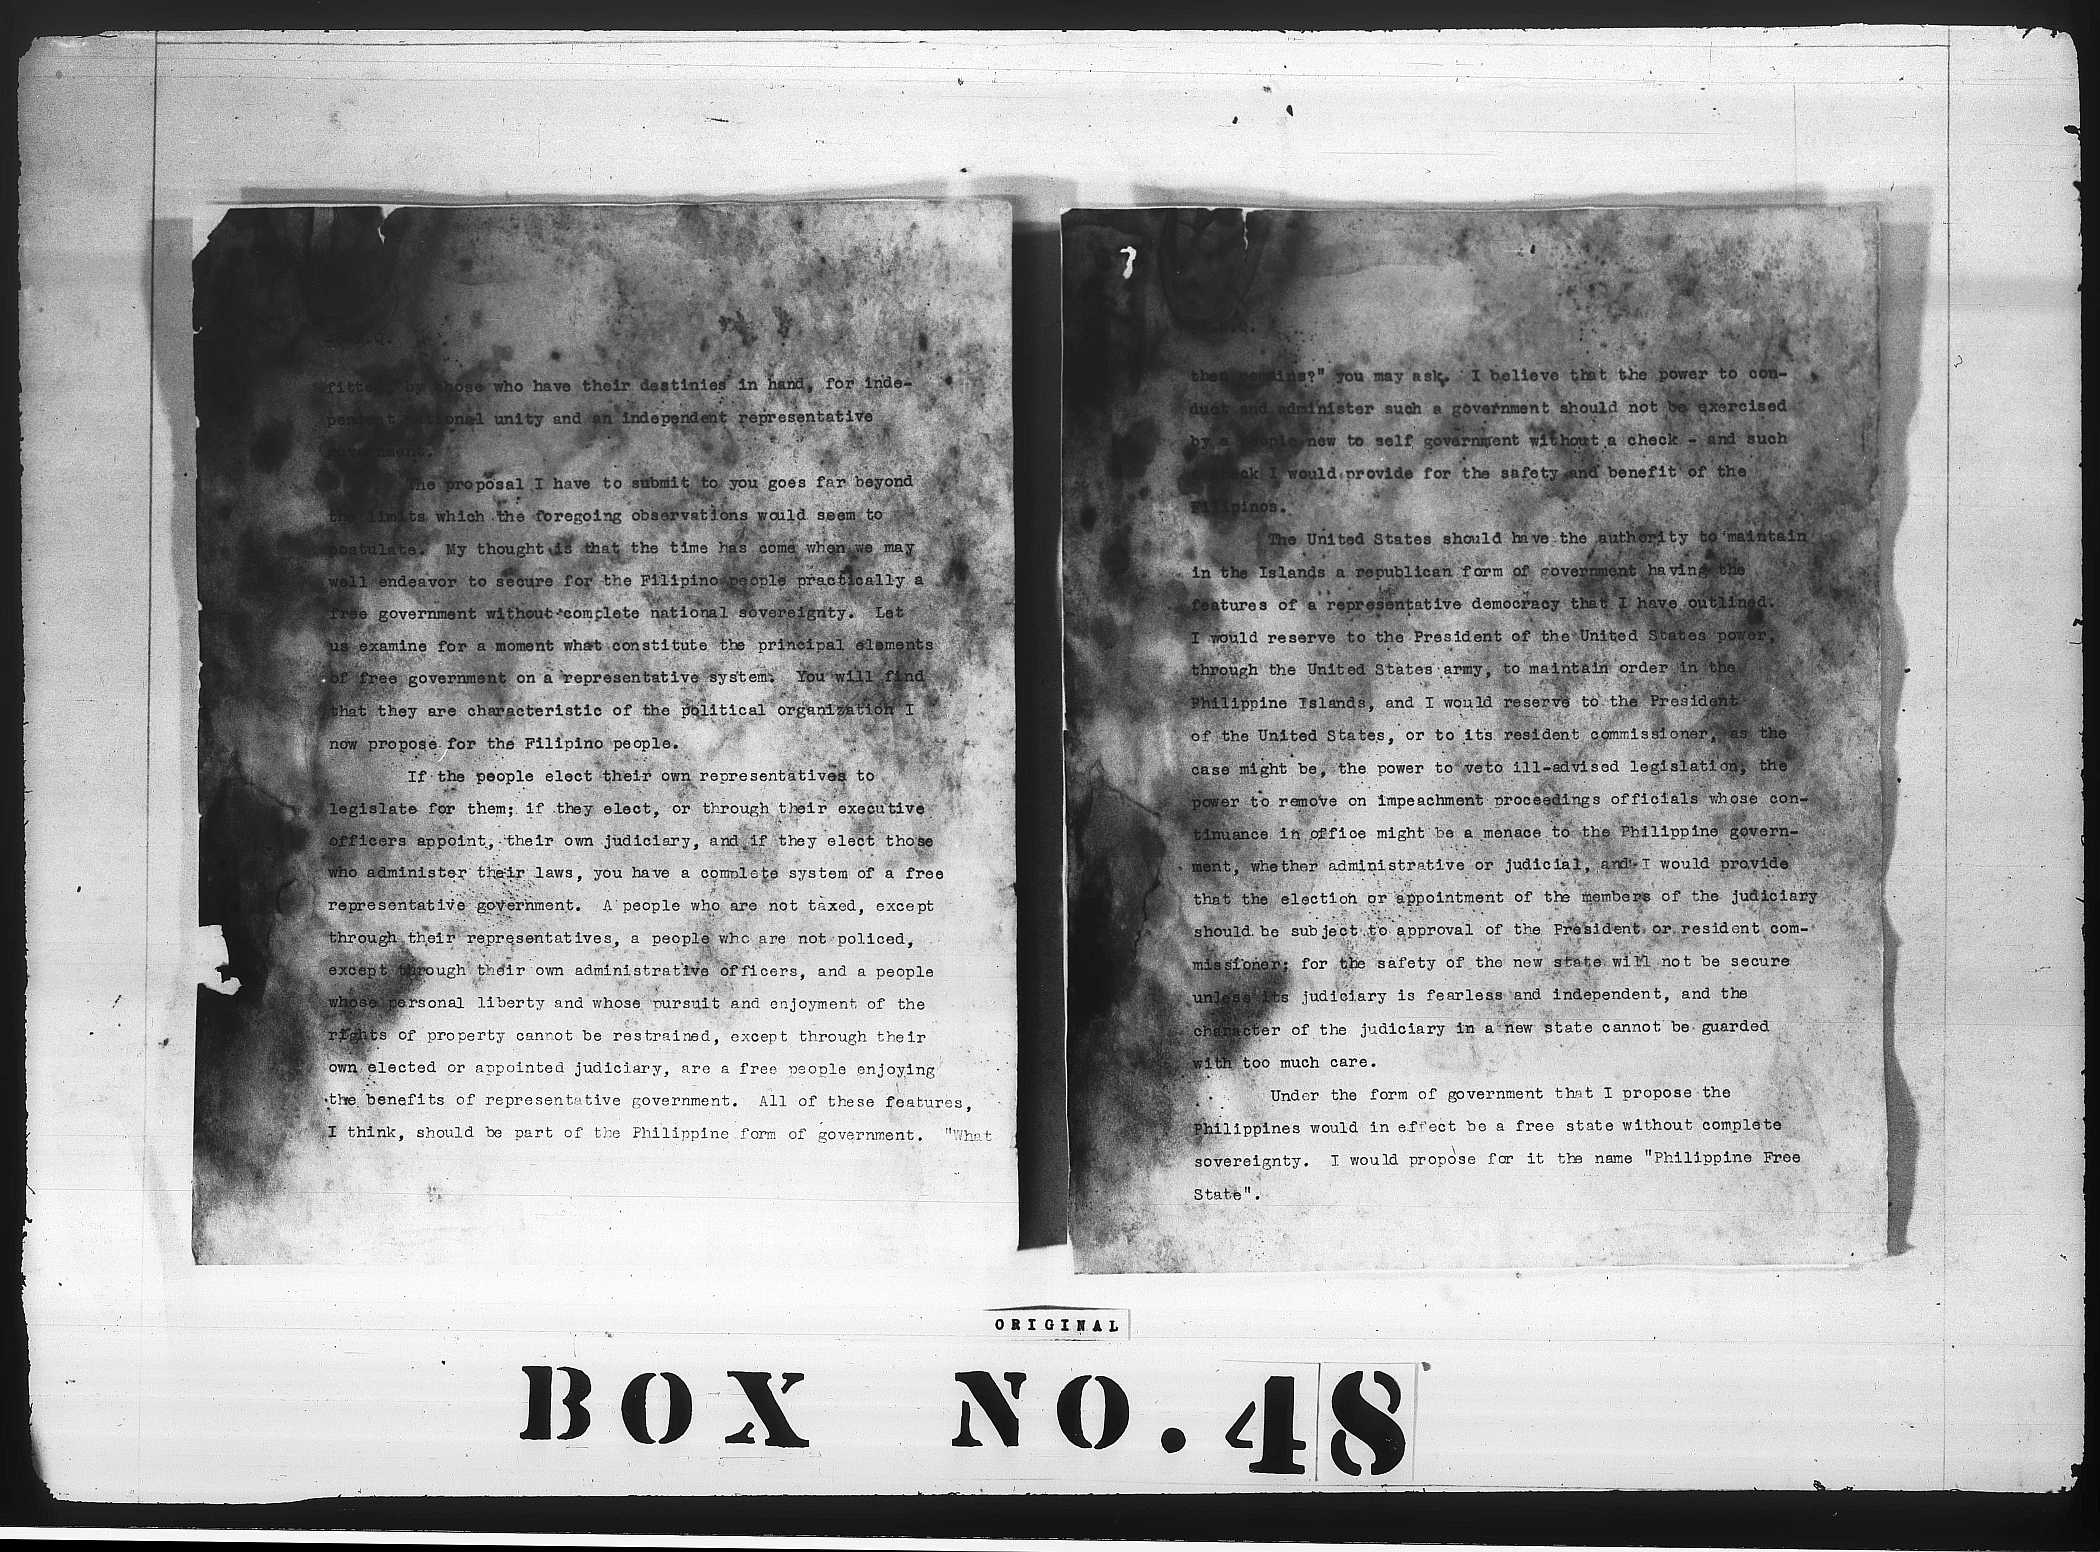 fitted, by those who have their destinies in hand, for inde-
pendent national unity and an independent representative
government.
The proposal I have to submit to you goes far beyond
the limits which the foregoing observations would seem to
postulate. My thought is that the time has come when we may
well endeavor to secure for the Filipino people practically a
free government without complete national sovereignty. Let
us examine for a moment what constitute the principal elements
of free government on a representative system. You will find
that they are characteristic of the political organization I
now propose for the Filipino people.
If the people elect their own representatives to
legislate for them; if they elect, or through their executive
officers appoint, their own judiciary, and if they elect those
who administer their laws, you have a complete system of a free
representative government. A people who are not taxed, except
through their representatives, a people who are not policed,
except through their own administrative officers, and a people
whose personal liberty and whose pursuit and enjoyment of the
rights of property cannot be restrained, except through their
own elected or appointed judiciary, are a free people enjoying
the benefits of representative government. All of these features,
I think, should be part of the Philippine form of government. "What
then remains?" you may ask. I believe that the power to con-
duct and administer such a government should not be exercised
by a people new to self government without a check - and such
check I would provide for the safety and benefit of the
Filipinos.
The United States should have the authority to maintain
in the Islands a republican form of government having the
features of a representative democracy that I have outlined.
I would reserve to the President of the United States power,
through the United States army, to maintain order in the
Philippine Islands, and I would reserve to the President
of the United States, or to its resident commissioner, as the
case might be, the power to veto ill-advised legislation, the
power to remove on impeachment proceedings officials whose con-
tinuance in office might be a menace to the Philippine govern-
ment, whether administrative or judicial, and I would provide
that the election or appointment of the members of the judiciary
should be subject to approval of the President or resident com-
missioner; for the safety of the new state will not be secure
unless its judiciary is fearless and independent, and the
character of the judiciary in a new state cannot be guarded
with too much care.
Under the form of government that I propose the
Philippines would in effect be a free state without complete
sovereignty. I would propose for it the name "Philippine Free
State".
ORIGINAL
BOX NO. 48